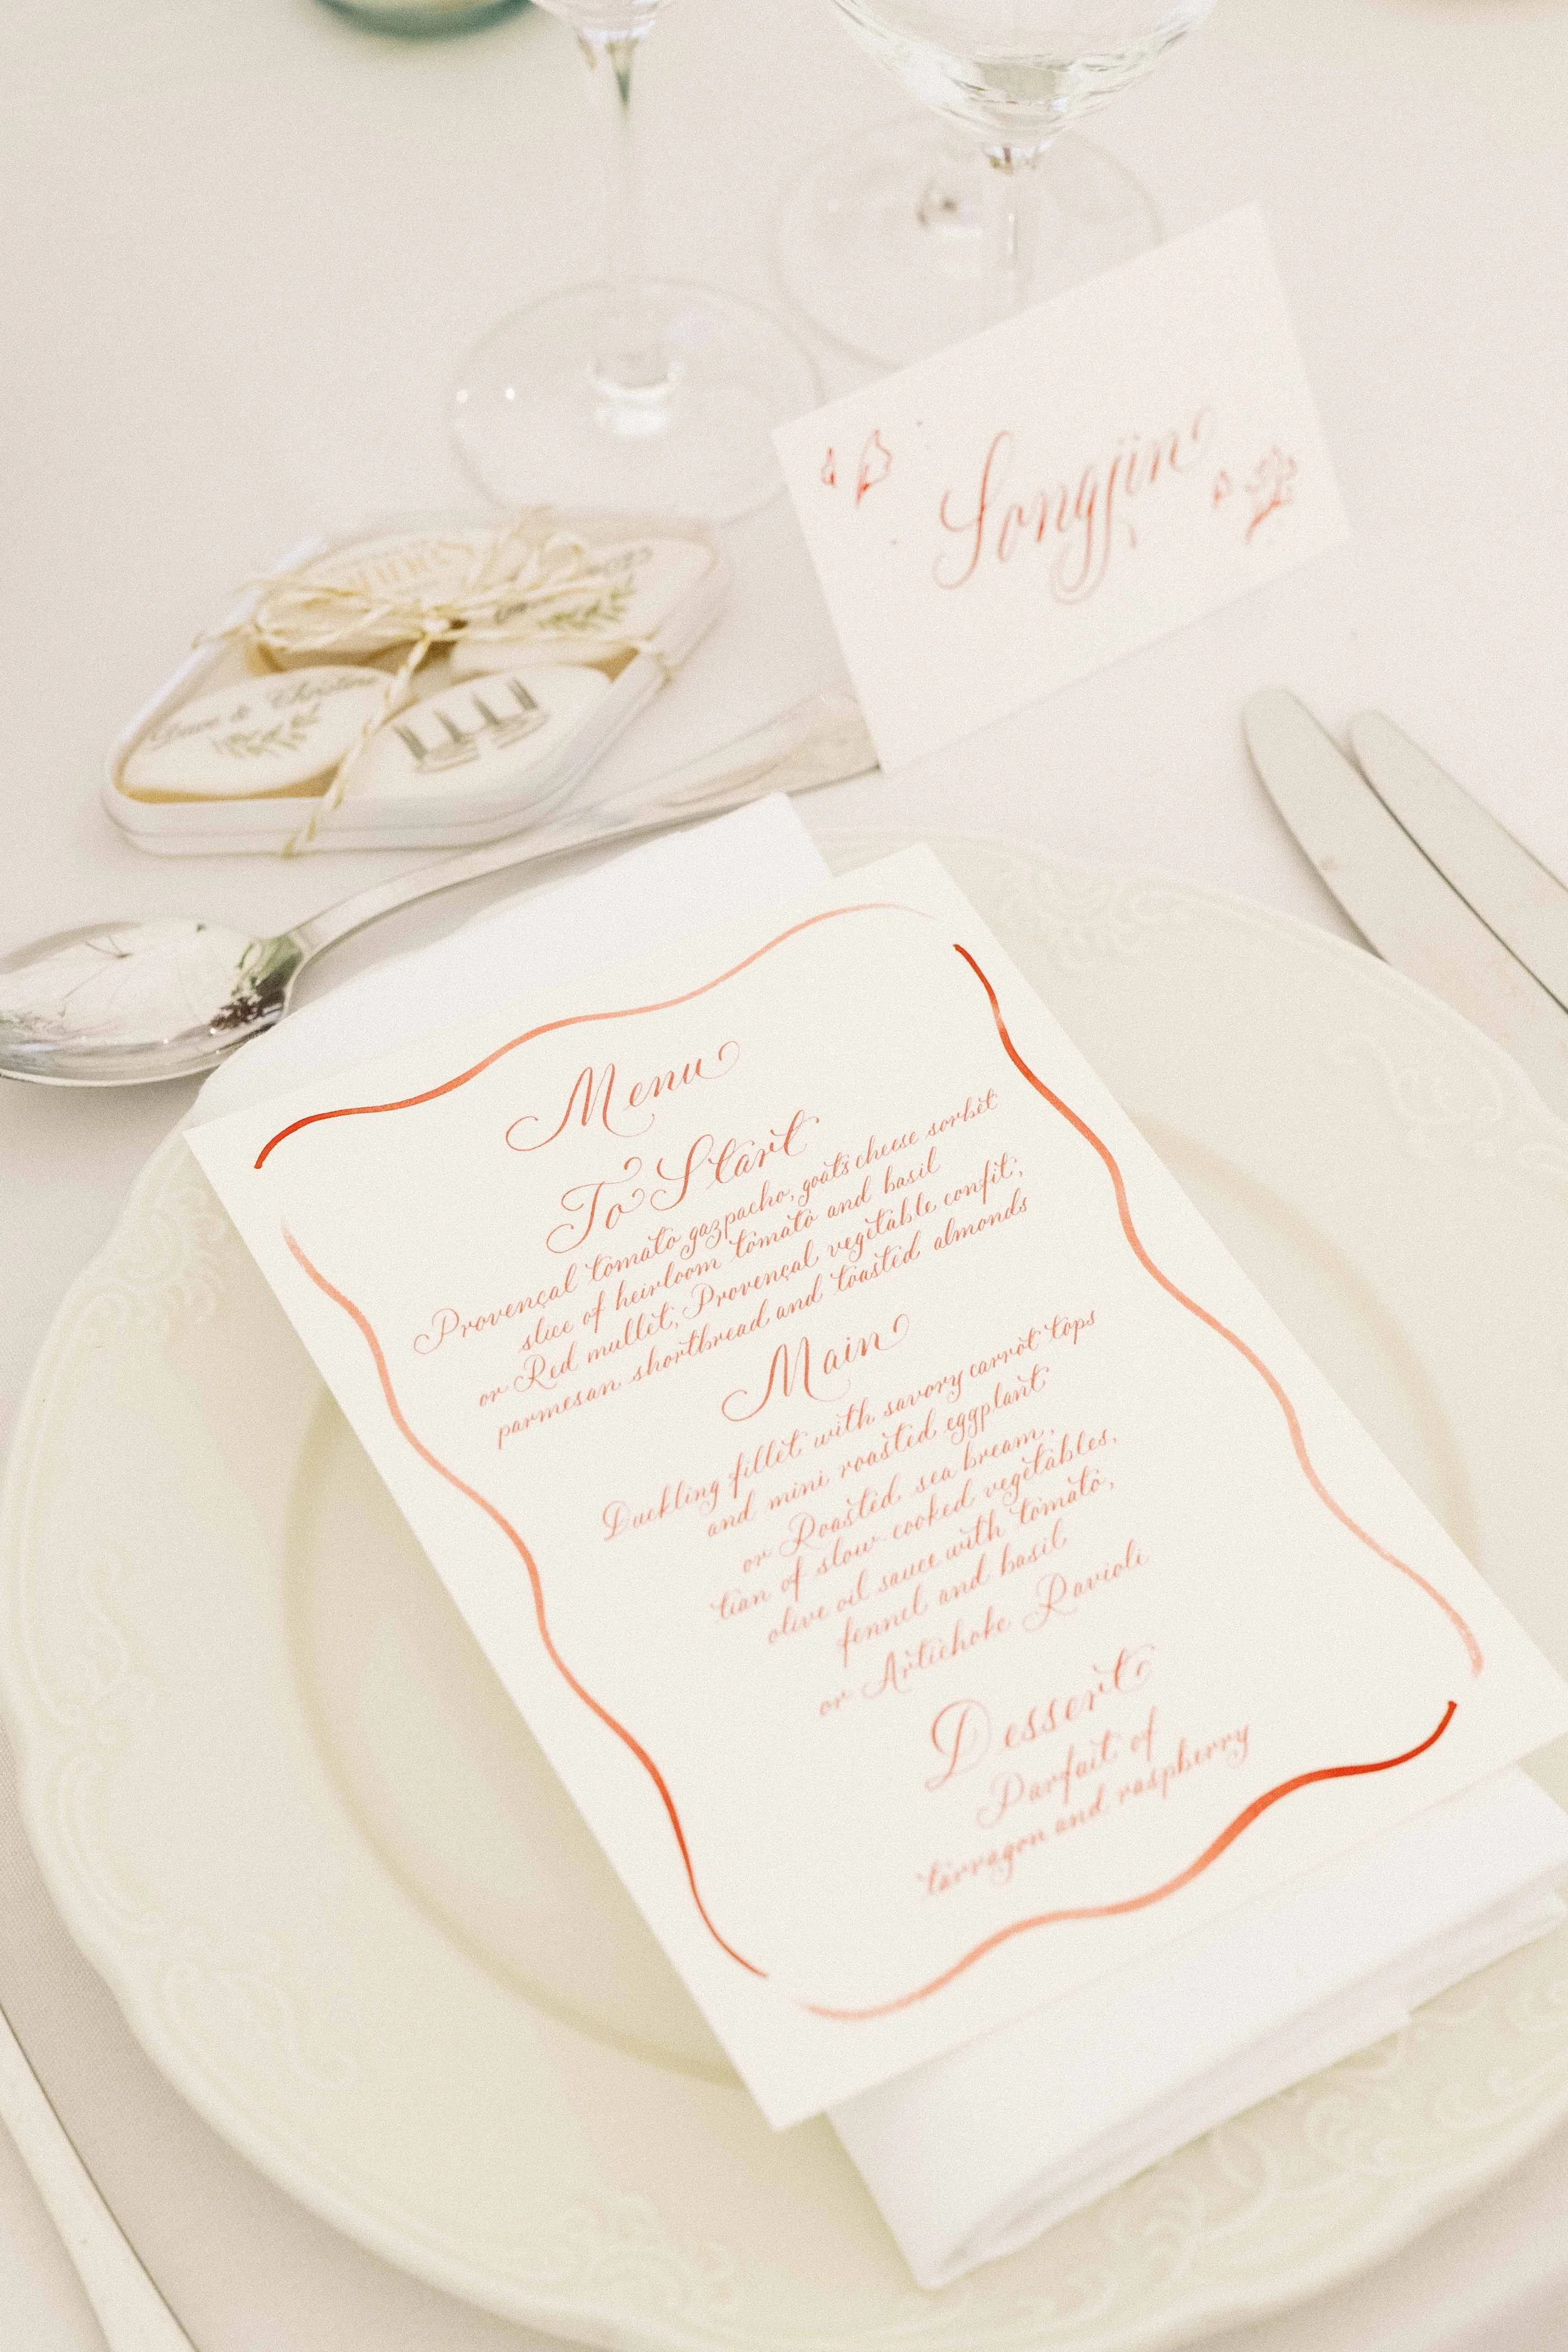 Songjin
Dave & Christine
Menu
To Start
Provençal tomato gazpacho, goats cheese sorbet
slice of heirloom tomato and basil
or Red mullet, Provençal vegetable confit,
parmesan shortbread and toasted almonds
Main
Duckling fillet with savory carrot tops
and mini roasted eggplant
or Roasted sea bream,
tian of slow-cooked vegetables,
olive oil sauce with tomato,
fennel and basil
or Artichoke Ravioli
Dessert
Parfait of
tarragon and raspberry